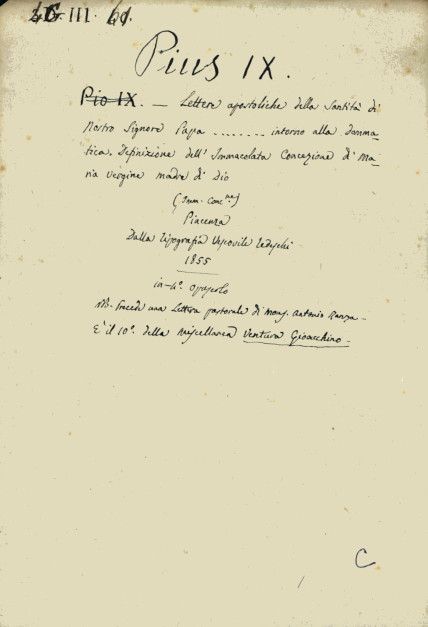 G. III. 61.
Pius IX.
Pio IX. — Lettere apostoliche della Santità di
Nostro Signore Papa ........ intorno alla Damma-
tica Definizione dell' Immacolata Concezione di Ma-
ria vergine madre di Dio
(Imm. Conc.ne)
Piacenza
Dalla tipografia Vescovile Tedeschi
1855
in-4º. opuscolo
NB. Precede una Lettera pastorale di mons. Antonio Ranza —
È il 10º. della Miscellanea Ventura Gioacchino —
C